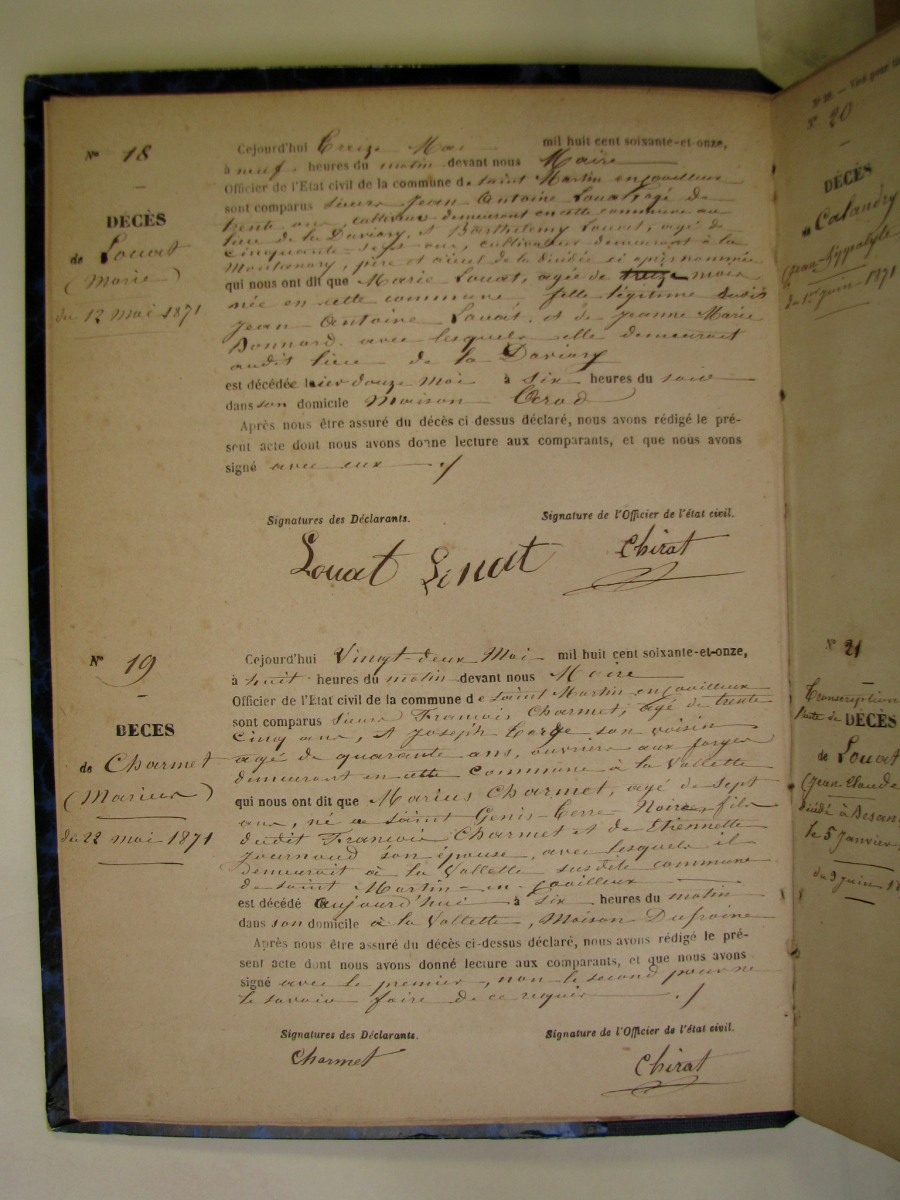 N° 18
DÉCÈS
de Louat
(Marie)
du 12 Mai 1871
Cejourd'hui Treize Mai mil huit cent soixante-et-onze,
à neuf heures du matin devant nous Maire
Officier de l'Etat civil de la commune de saint Martin en coailleux
sont comparus sieurs Jean Antoine Louat, agé de
trente ans, cultivateur demeurant en cette commune au
lieu de la Davisry, et Barthelemy Louat, agé de
cinquante-sept ans, cultivateur demeurant à la
père et aïeul de la décédée ci après nommée
qui nous ont dit que Marie Louat, agée de treize mois
née en cette commune, fille légitime dudit
Jean Antoine Louat, et de Jeanne Marie
Bonnard, avec lesquels elle demeurait
audit lieu de la Daviary
est décédée hier douze Mai à six heures du soir
dans son domicile Maison
Après nous être assuré du décès ci-dessus déclaré, nous avons rédigé le pré-
sent acte dont nous avons donné lecture aux comparants, et que nous avons
signé avec eux ./
Signatures des Déclarants.
Signature de l'Officier de l'état civil.
Louat Louat Chirat
N° 19
DÉCÈS
de Charmet
(Marius)
du 22 mai 1871
Cejourd'hui Vingt-deux Mai mil huit cent soixante-et-onze,
à huit heures du matin devant nous Maire
Officier de l'Etat civil de la commune de saint Martin en coailleux
sont comparus sieurs François Charmet, agé de trente
cinq ans, et Joseph son voisin
agé de quarante ans, ouvriers aux forges
demeurant en cette commune à la Vallette
qui nous ont dit que Marius Charmet, agé de sept
ans, né à saint Genis-Terre Noire, fils
dudit François Charmet et de Etiennette
Journoud son épouse, avec lesquels il
demeurait à la Vallette susdite commune
de saint Martin-en-coailleux
est décédé aujourd'hui à six heures du matin
dans son domicile à la Vallette, Maison Dufraine
Après nous être assuré du décès ci-dessus déclaré, nous avons rédigé le pré-
sent acte dont nous avons donné lecture aux comparants, et que nous avons
signé avec le premier, non le second pour ne
le savoir faire de ce requis ./
Signatures des Déclarants.
Signature de l'Officier de l'état civil.
Charmet Chirat
N° 20
DÉCÈS
de Calandry
(Jean Hyppolyte
du 1er juin 1871
N° 21
Transcription
DÉCÈS
de Louat
(Jean Claude
décédé à Besan
le 5 Janvier
du 3 juin 18